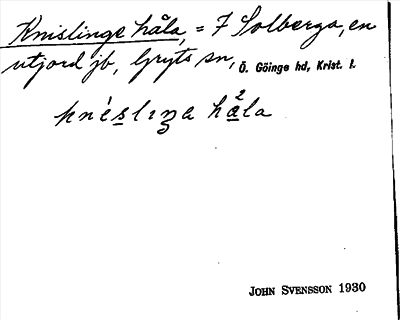 Knislinge håla, = 7 Solberga, en
utjord jb, Gryts sn, Ö. Göinge hd, Krist. l.
knéslɪŋa hå²la
JOHN SVENSSON 1930